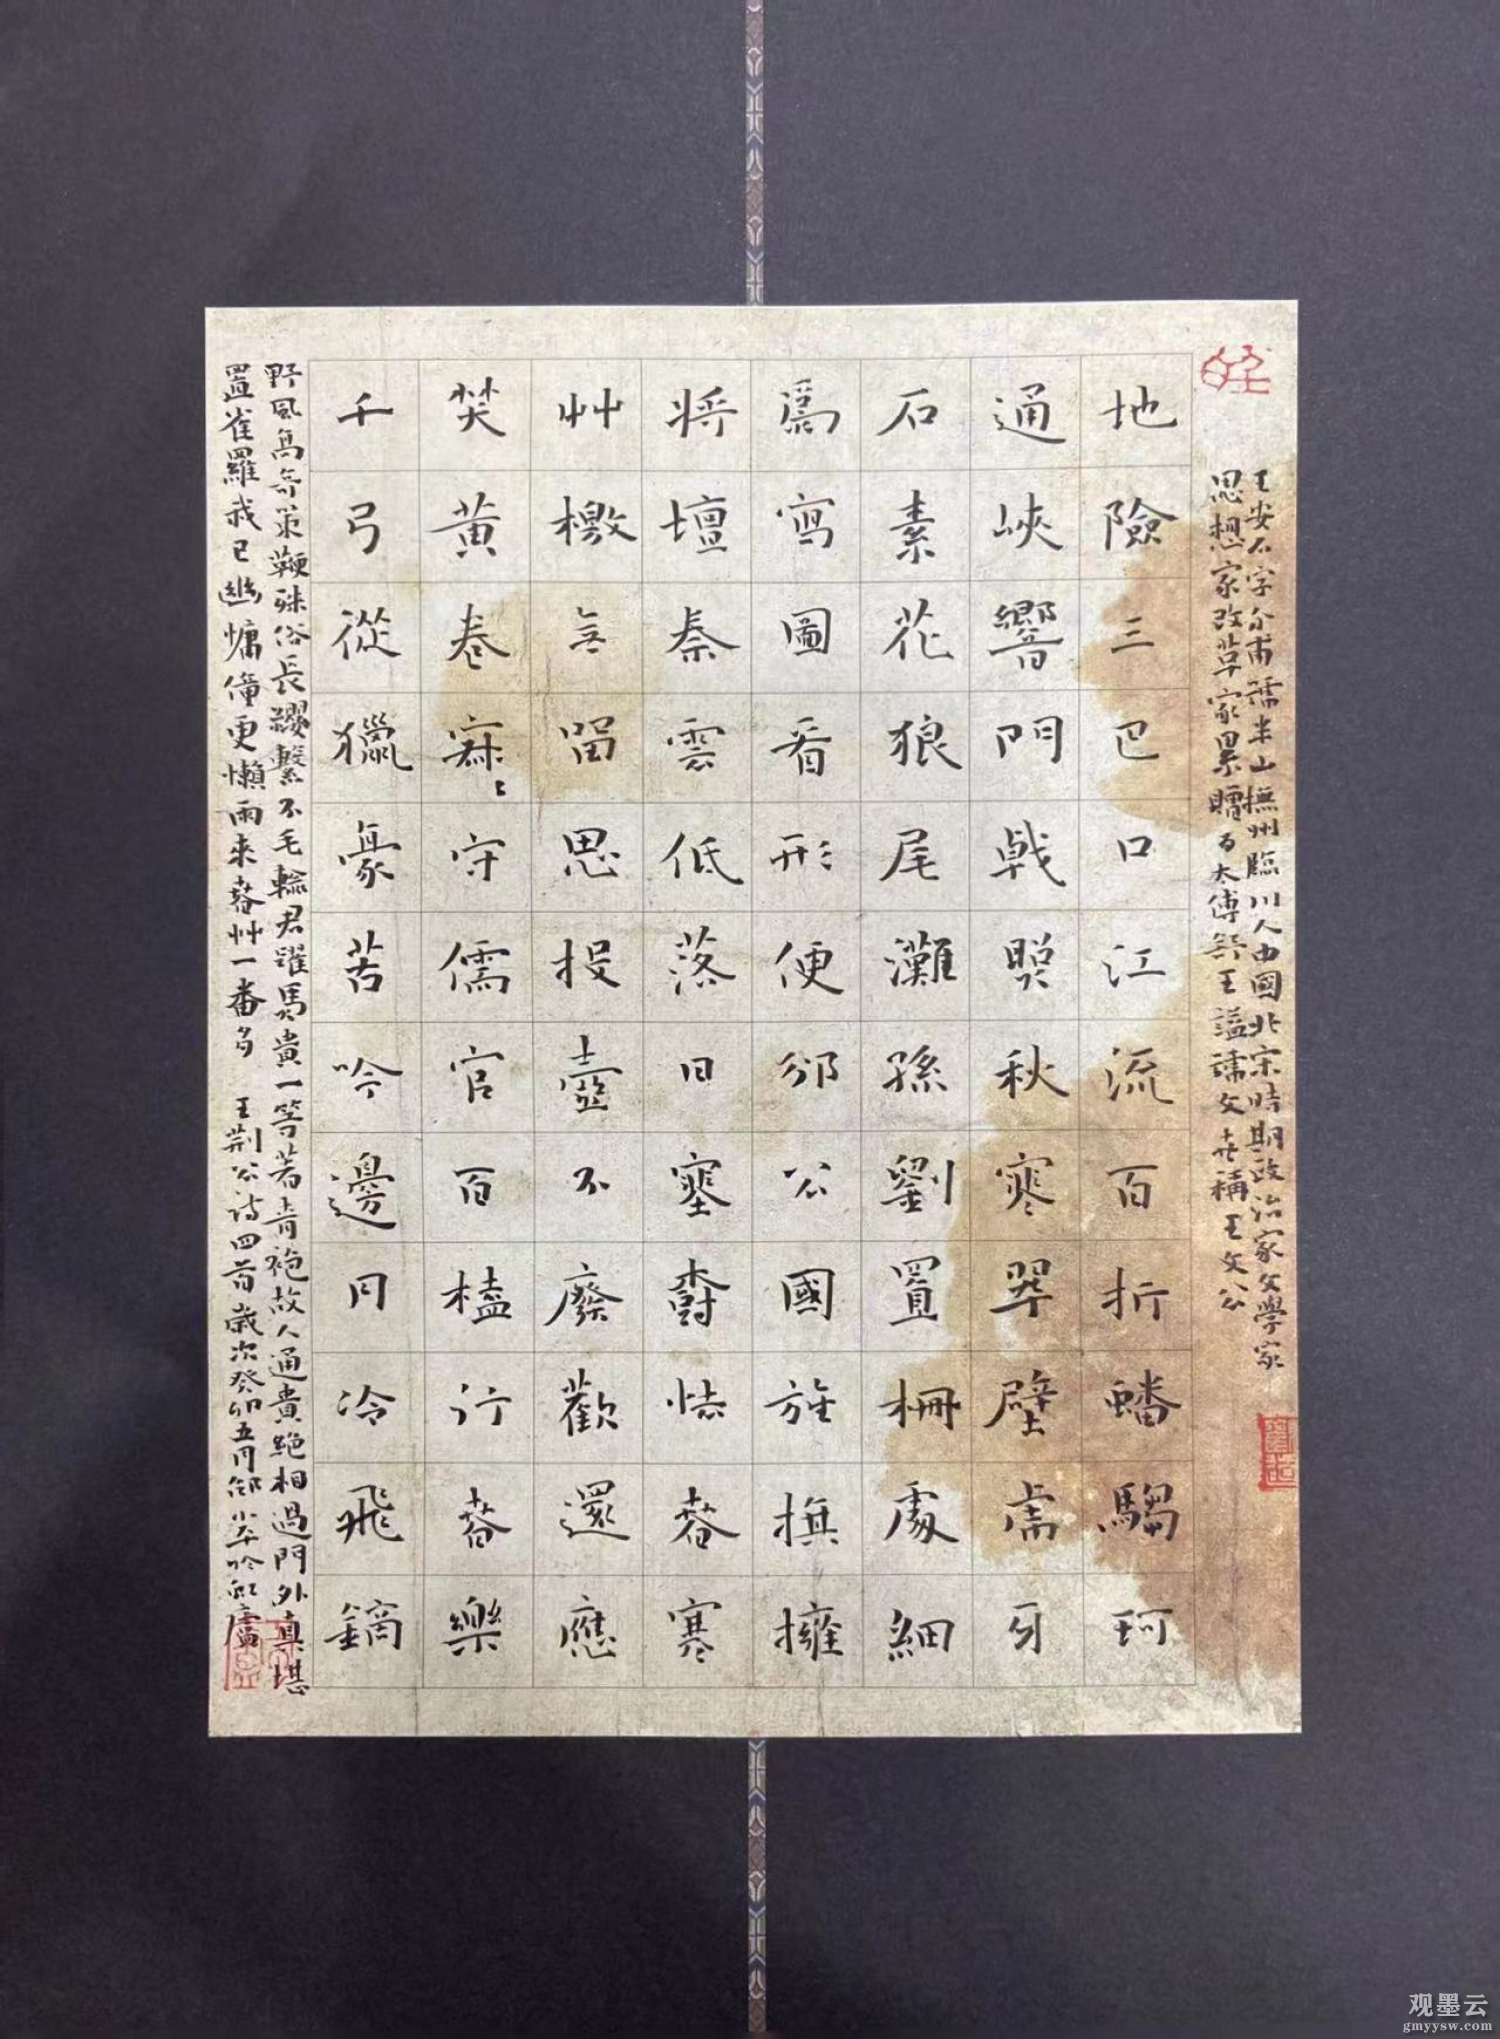 王安石字介甫號半山撫州臨川人中國北宋時期政治家文學家
思想家改革家累贈為太傅舒王諡號文世稱王文公
地險三巴口江流百折蟠騶珂
通峽響門戟照秋寒翠壁虛牙
石素花狼尾灘孫劉置柵處細
為寫圖看形便分公國旌旗擁
將壇秦雲低落日塞樹怯春寒
艸檄無留思投壺不廢歡還應
焚黃卷寂〻守儒官百榼行春樂
千弓從獵豪苦吟邊月冷飛鏑
野風高奇策鞭殊俗長纓繫不毛輸君躍馬貴一等若青袍故人通貴絕相過門外真堪
置雀羅我已幽慵僮更懶雨來春艸一番多 王荊公詩四首歲次癸卯五月邰小平於虹廬
观墨云
gmyysw.com